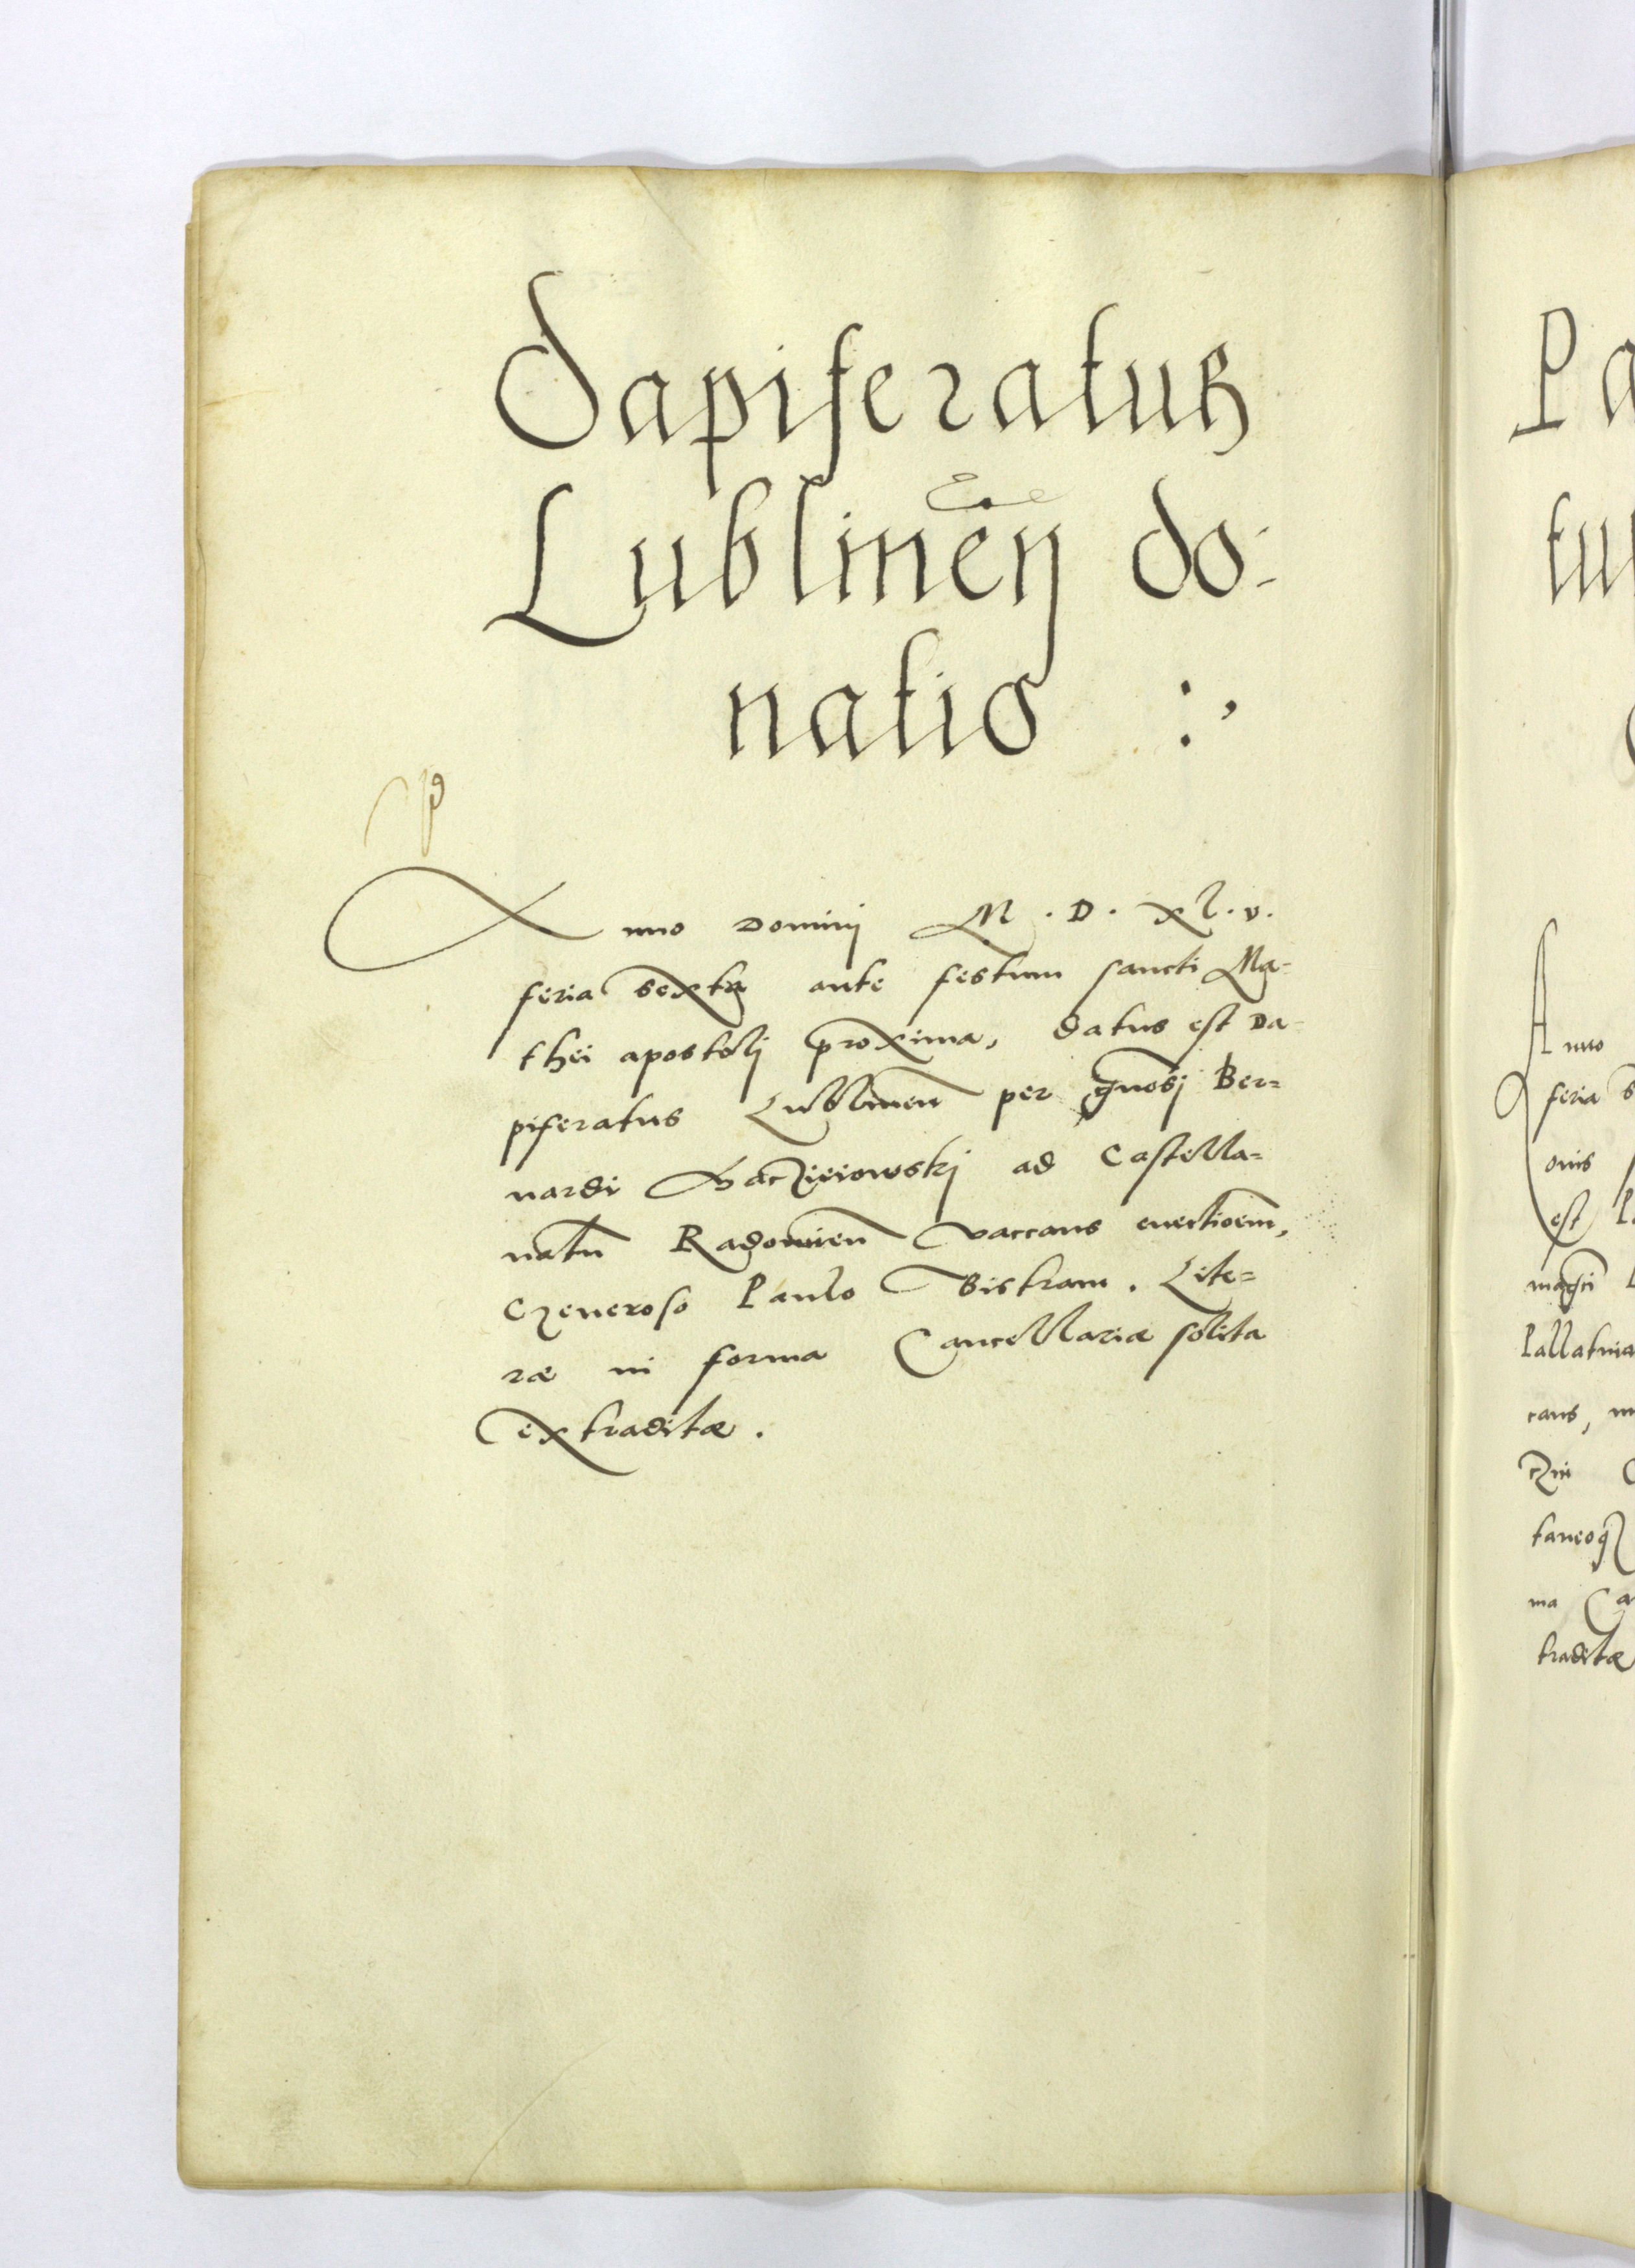 Dapiferatus
Lublineñ do:
natio :,
Anno Domini M.D.xl.v.
feria sexta ante festum sancti Ma=
thei apostolj proxima, datus est Da=
piferatus Lublineñ per gnosj Ber=
nardi Maczieiowskj ad Castella=
natũ Radomieñ vaccans euectioem̃,
Generoso Paulo Bistram. Lite=
ræ in forma Cancellariæ solita
extraditæ.
Pa
tu
Anno
feria s
onis
est
magci
Pallatina
cans, in
taneoq
ma Ca
traditæ